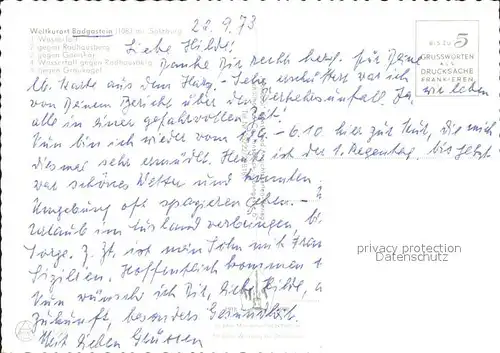 22.9.73
Weltkurort Badgastein (1083 m), Salzburg
1 Wasserfall
2 gegen Radhausberg
3 gegen Gaiskar
4 Wasserfall gegen Radhausberg
5 gegen Graukogel
BIS ZU 5
GRUSSWORTEN
ALS
DRUCKSACHE
FRANKIEREN
Liebe Hilde!
Danke Dir recht herzl. für Deine
lb. Karte aus dem Harz. - Sehr erschüttert war ich
von Deinem Bericht über den Verkehrsunfall. Ja, wir leben
alle in einer gefahrvollen Zeit!
Nun bin ich wieder vom - 6.10. hier zur Kur, die mich
diesmal sehr ermüdet. Heute ist der 1. Regentag, bis jetzt
war schönes Wetter und konnten
Umgebung oft spazieren gehen. -
Urlaub im Ausland verbringen,
Sorge. Z. Zt. ist mein Sohn mit Frau
Sizilien. Hoffentlich kommen
Nun wünsche ich Dir, liebe Hilde,
Zukunft, besonders Gesundheit.
Mit lieben Grüssen
privacy protection
Datenschutz